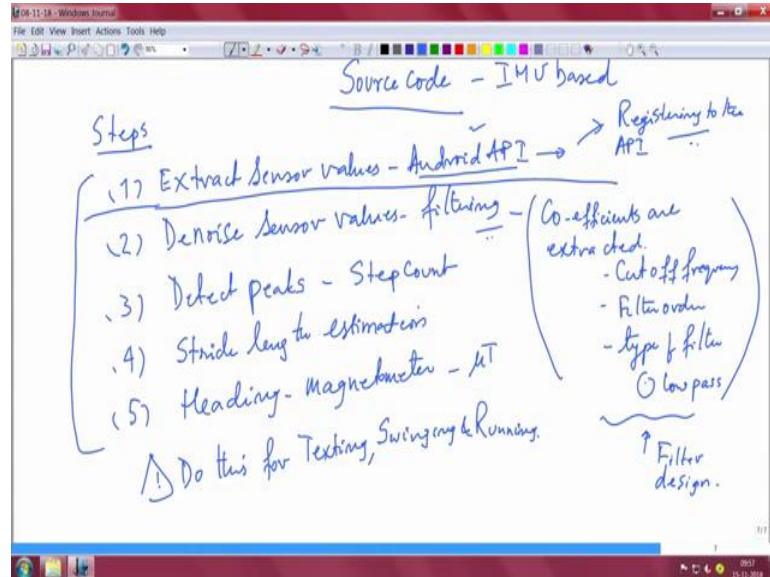 08-11-18 - Windows Journal
File Edit View Insert Actions Tools Help
Source Code - IMU based
Steps
(1) Extract Sensor values - Android API → Registering to the API
(2) Denoise Sensor values - filtering - (Co-efficients are extracted.
- Cut off frequency
- Filter order
- type of filter
low pass)
↑ Filter design.
(3) Detect peaks - StepCount
(4) Stride length estimation
(5) Heading - magnetometer - μT
! Do this for Texting, Swinging & Running.
7/7
7
0957
15-11-2018